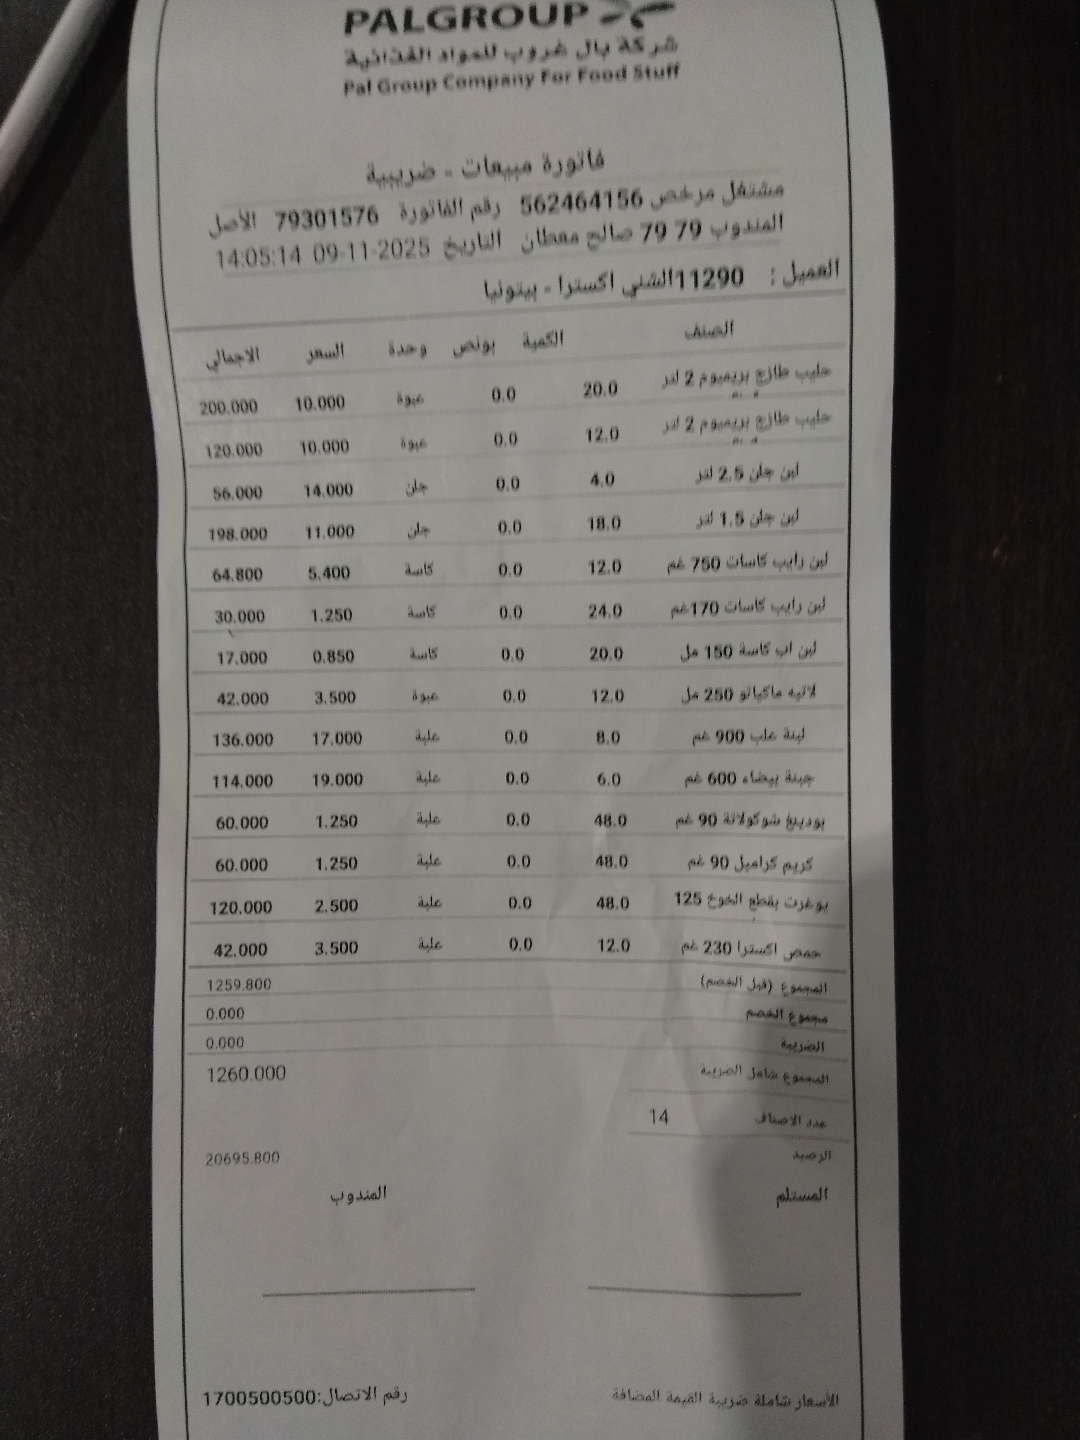 PALGROUP
شركة بال غروب للمواد الغذائية
Pal Group Company For Food Stuff
فاتورة مبيعات - ضريبية
مشتغل مرخص 562464156 رقم الفاتورة 79301576 الأصل
المندوب 79 79 صالح معطان التاريخ 2025-11-09 14:05:14
العميل : 11290الشني اكسترا - بيتونيا
الصنف الكمية بونص وحدة السعر الاجمالي
حليب طازج بريميوم 2 لتر 20.0 0.0 عبوة 10.000 200.000
حليب طازج بريميوم 2 لتر 12.0 0.0 عبوة 10.000 120.000
لبن جلن 2.5 لتر 4.0 0.0 جلن 14.000 56.000
لبن جلن 1.5 لتر 18.0 0.0 جلن 11.000 198.000
لبن رايب كاسات 750 غم 12.0 0.0 كاسة 5.400 64.800
لبن رايب كاسات 170غم 24.0 0.0 كاسة 1.250 30.000
لبن اب كاسة 150 مل 20.0 0.0 كاسة 0.850 17.000
لاتيه ماكياتو 250 مل 12.0 0.0 عبوة 3.500 42.000
لبنة علب 900 غم 8.0 0.0 علبة 17.000 136.000
جبنة بيضاء 600 غم 6.0 0.0 علبة 19.000 114.000
بودينغ شوكولاتة 90 غم 48.0 0.0 علبة 1.250 60.000
كريم كراميل 90 غم 48.0 0.0 علبة 1.250 60.000
يوغرت بقطع الخوخ 125 48.0 0.0 علبة 2.500 120.000
حمص اكسترا 230 غم 12.0 0.0 علبة 3.500 42.000
المجموع (قبل الخصم) 1259.800
مجموع الخصم 0.000
الضريبة 0.000
المجموع شامل الضريبة 1260.000
عدد الاصناف 14
الرصيد 20695.800
المستلم المندوب
الأسعار شاملة ضريبة القيمة المضافة رقم الاتصال:1700500500